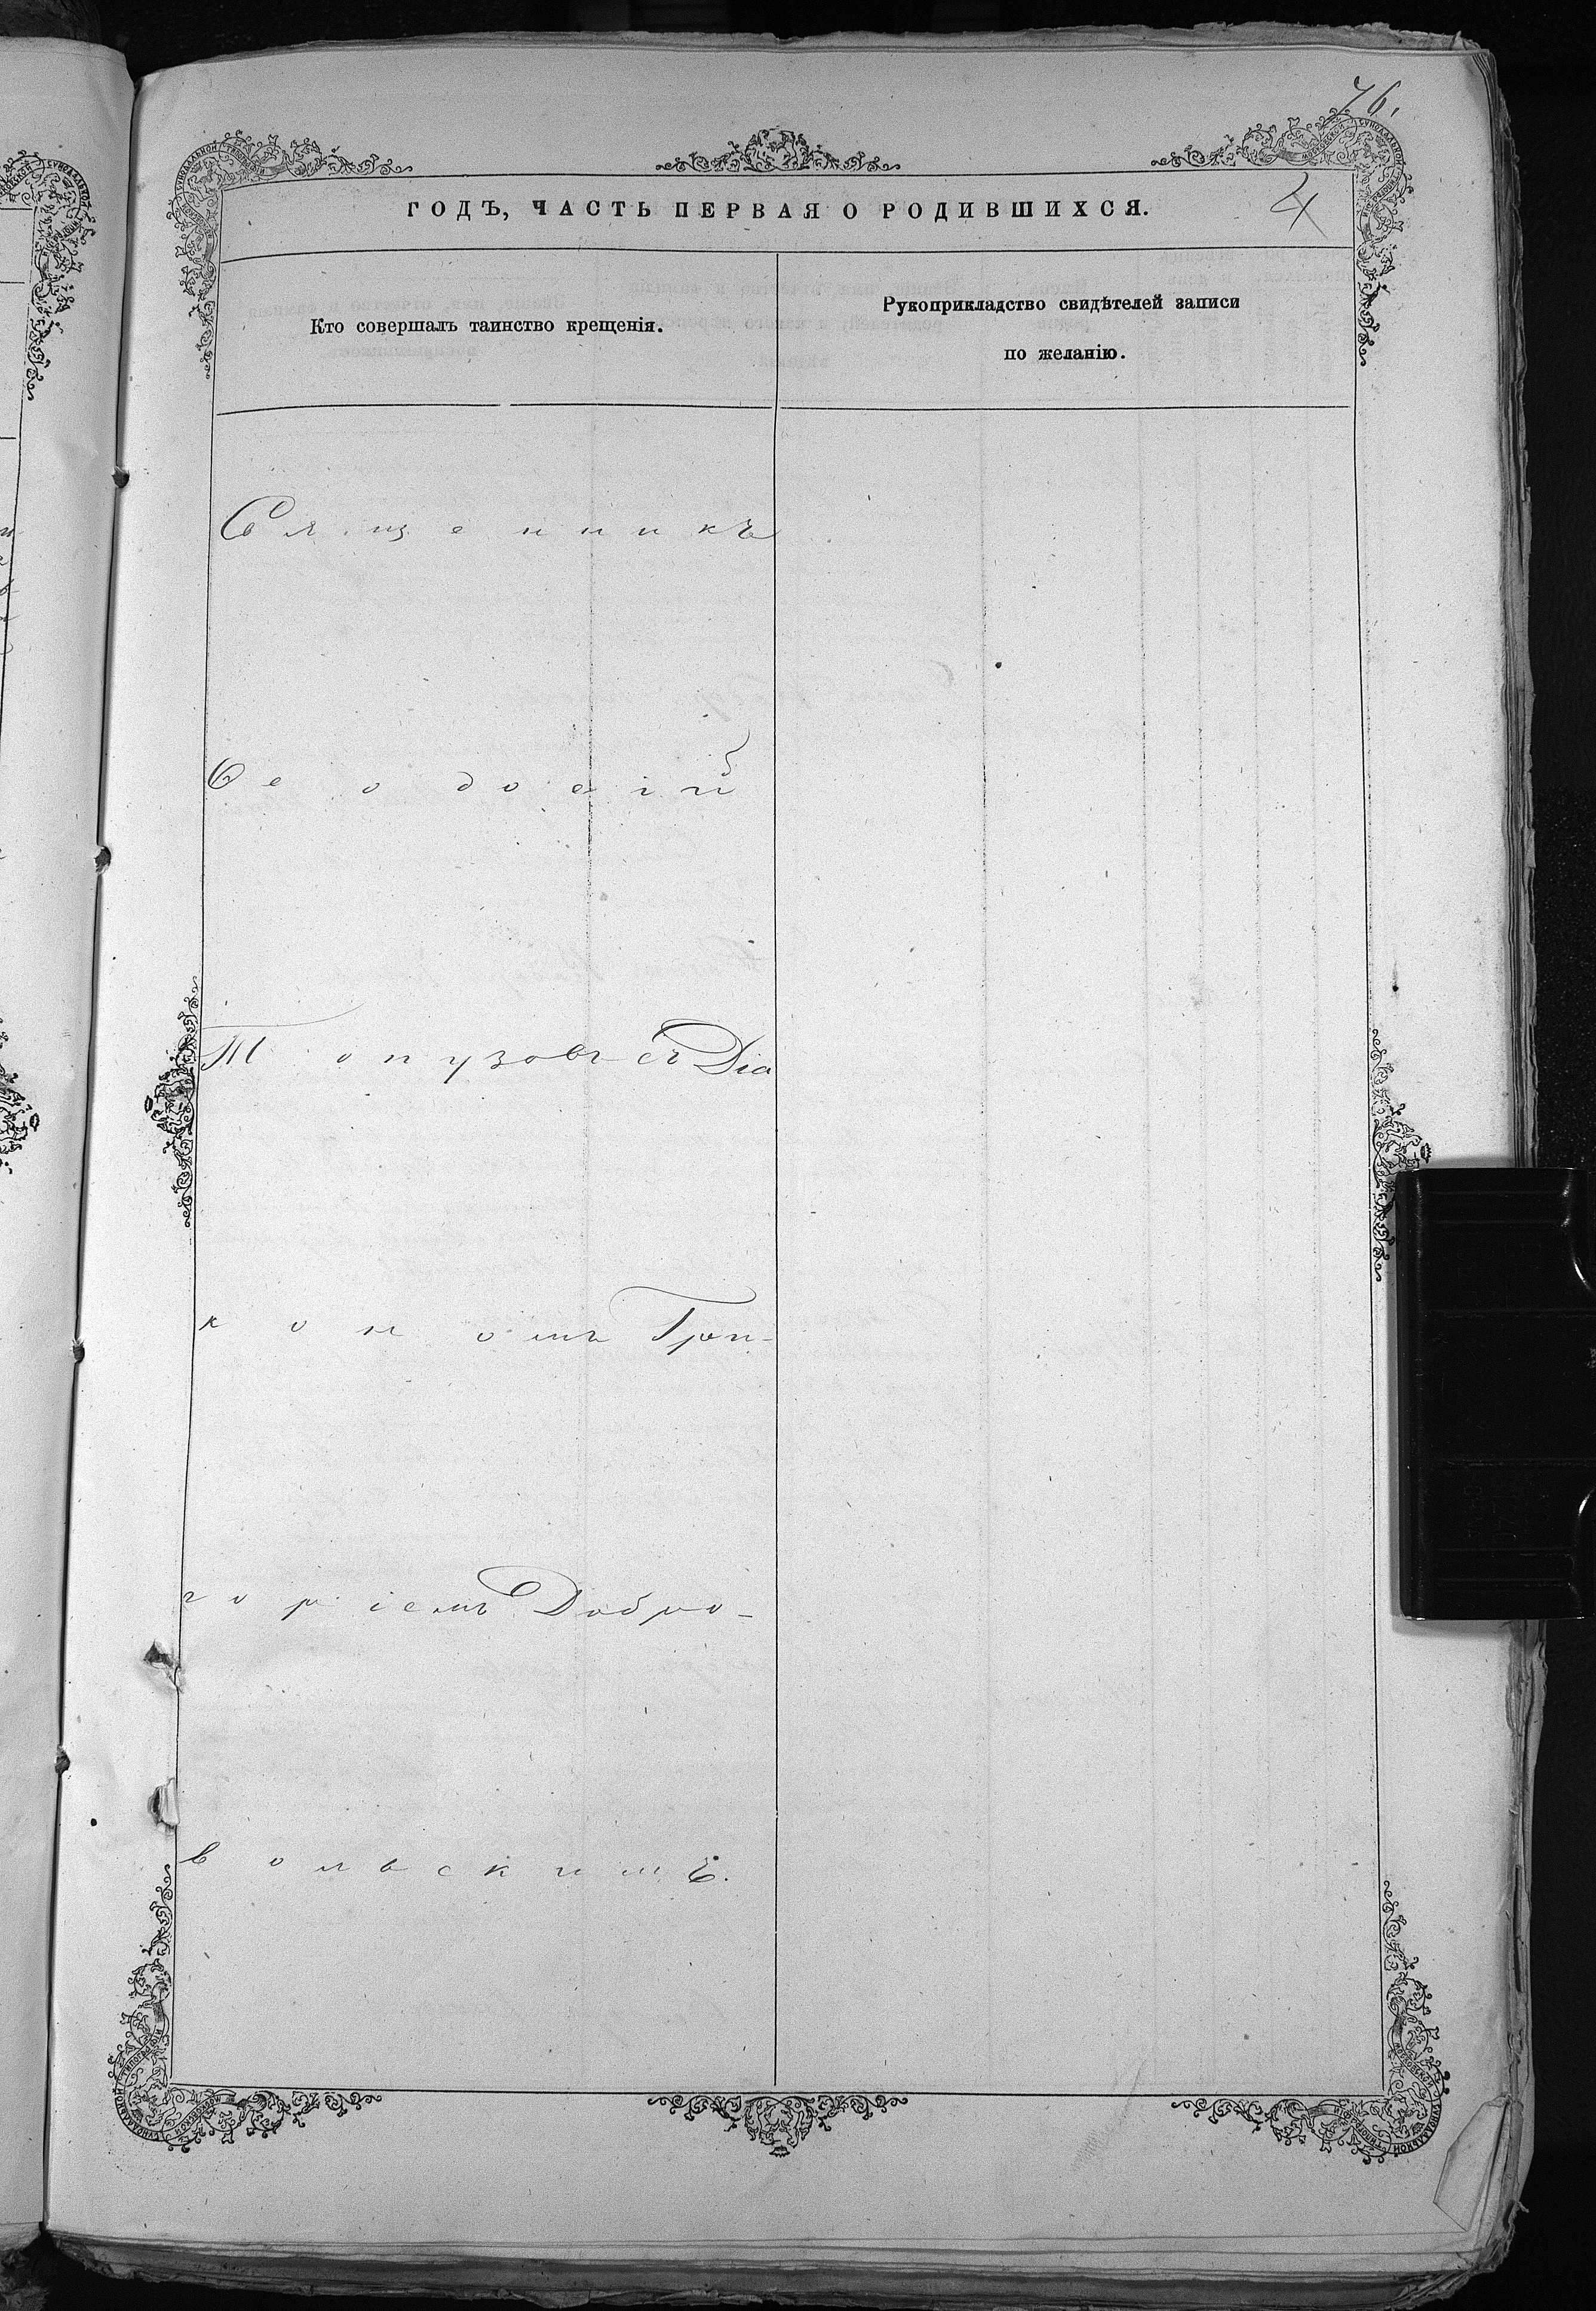 76.
ГОДЪ, ЧАСТЬ ПЕРВАЯ О РОДИВШИХСЯ.
4
Кто совершалъ таинство крещенія.
Рукоприкладство свидѣтелей записи
по желанію.
Священникъ
Ѳеодосій
Топузовъ съ Діа
кономъ Гри-
горіемъ Добро-
вольскимъ.